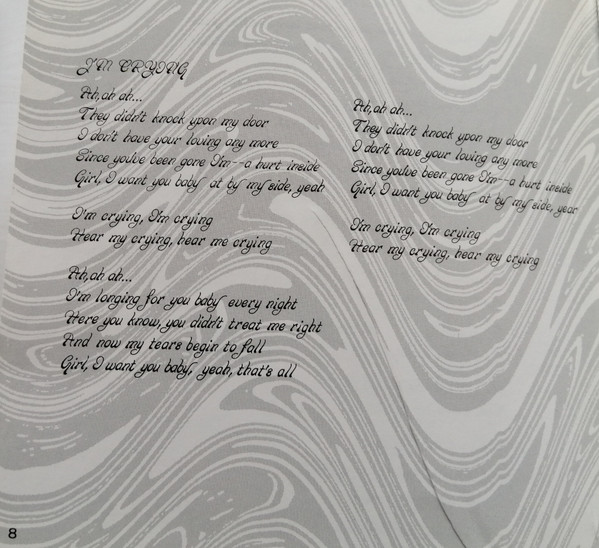 I'M CRYING
Ah, ah ah...
They didn't knock upon my door
I don't have your loving any more
Since you've been gone I'm--a hurt inside
Girl, I want you baby at by my side, yeah
I'm crying, I'm crying
Hear my crying, hear me crying
Ah, ah ah...
I'm longing for you baby every night
Here you know, you didn't treat me right
And now my tears begin to fall
Girl, I want you baby, yeah, that's all
Ah, ah ah...
They didn't knock upon my door
I don't have your loving any more
Since you've been gone I'm--a hurt inside
Girl, I want you baby at by my side, year
I'm crying, I'm crying
Hear my crying, hear my crying
8